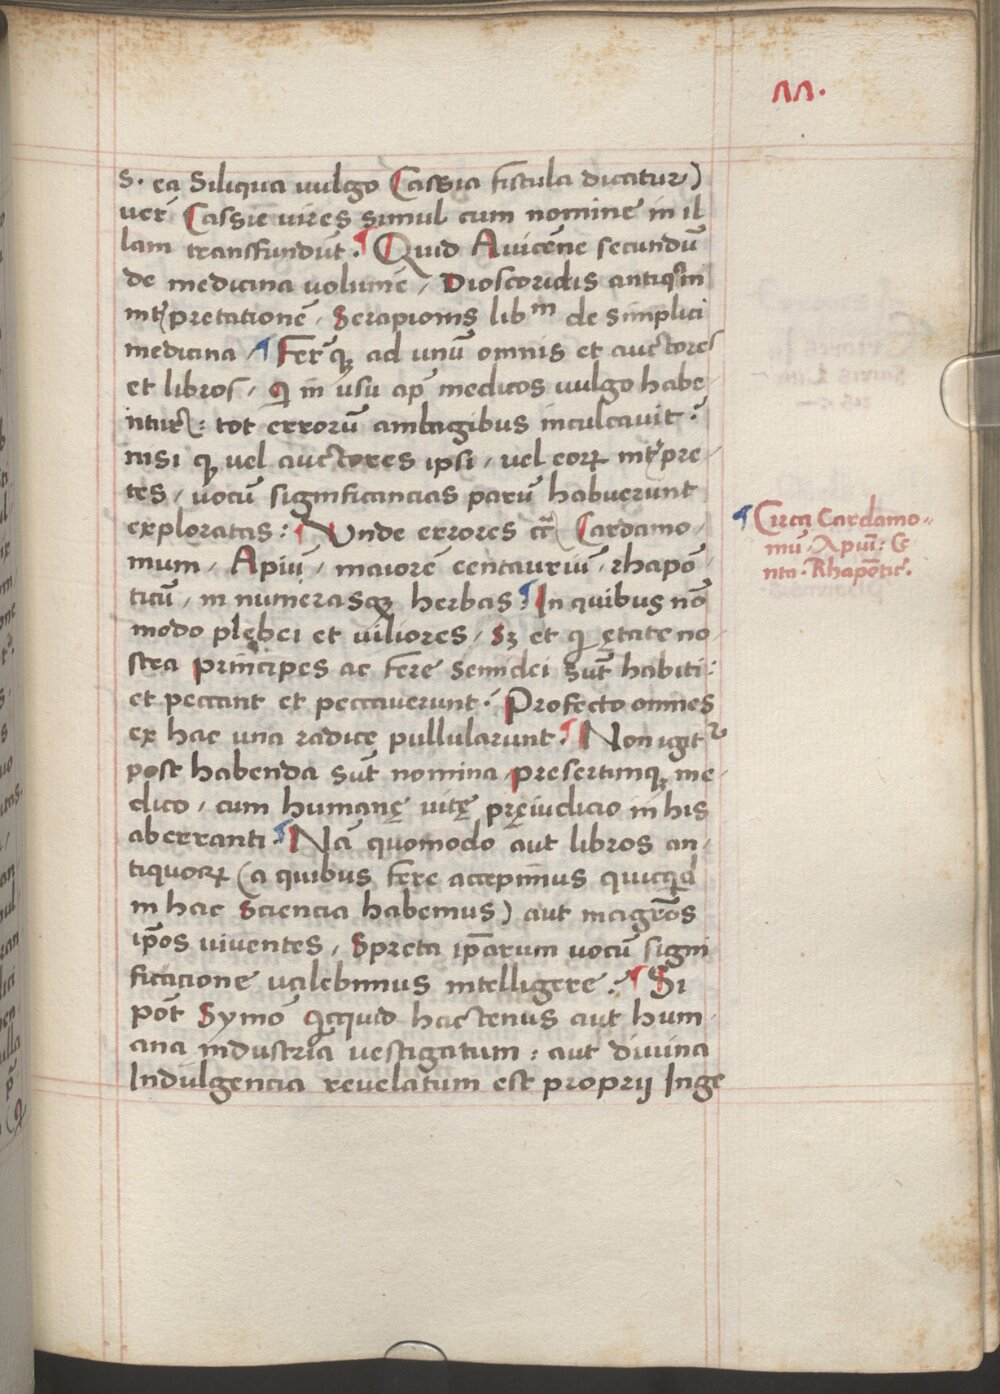 S. ea Siliqua vulgo Cassia fistula dicatur)
ueꝝ Cassie vires simul cum nomine in il
lam transfundūt. ¶ Quid Auicēne secundū
de medicina volumē / Dioscoridis antiqͣm
int'pretationē / Serapionis libᵐ de simplici
medicina / ¶ Ferꝫ ad unū omnis et auctores
et libros / qͥ in usu ap̄ medicos vulgo habe-
ntur: tot errorū ambagibus inculcavit?
nisi ꝙ vel auctores ipsi / vel eoꝝ int'pre-
tes / vocū significancias parū habuerunt
exploratas: ¶ Vnde errores cc̄ Cardamo-
mum / Apiū / maiorē centauriū / rhapō-
ticū / in numerasqꝫ herbas? ¶ In quibus nō
modo plębei et viliores / Sꝫ et qͥ ętate no-
stra principes ac fere Semidei sūt habiti:
et peccant et peccauerunt. Profecto omnes
ex hac una radice pullularunt. ¶ Non igit᷑
post habenda sūt nomina presertimqꝫ me-
dico / cum humanę vitę pręiudicio in his
aberranti. ¶ Nā quomodo aut libros an-
tiquoꝝ (a quibus fere accepimus quicqͥd
in hac Sciencia habemus) aut in agrōs
ip̄os viventes / Spreta ip̄arum vocū signi
ficacione valebimus intelligere? ¶ Si
pōt Symō Qͥcquid hactenus aut hum-
ana industria vestigatum: aut divina
Indulgencia revelatum est proprij Inge
¶ Circa Cardamo-
mū. Apiū: Ce
nta. Rhapōtic.